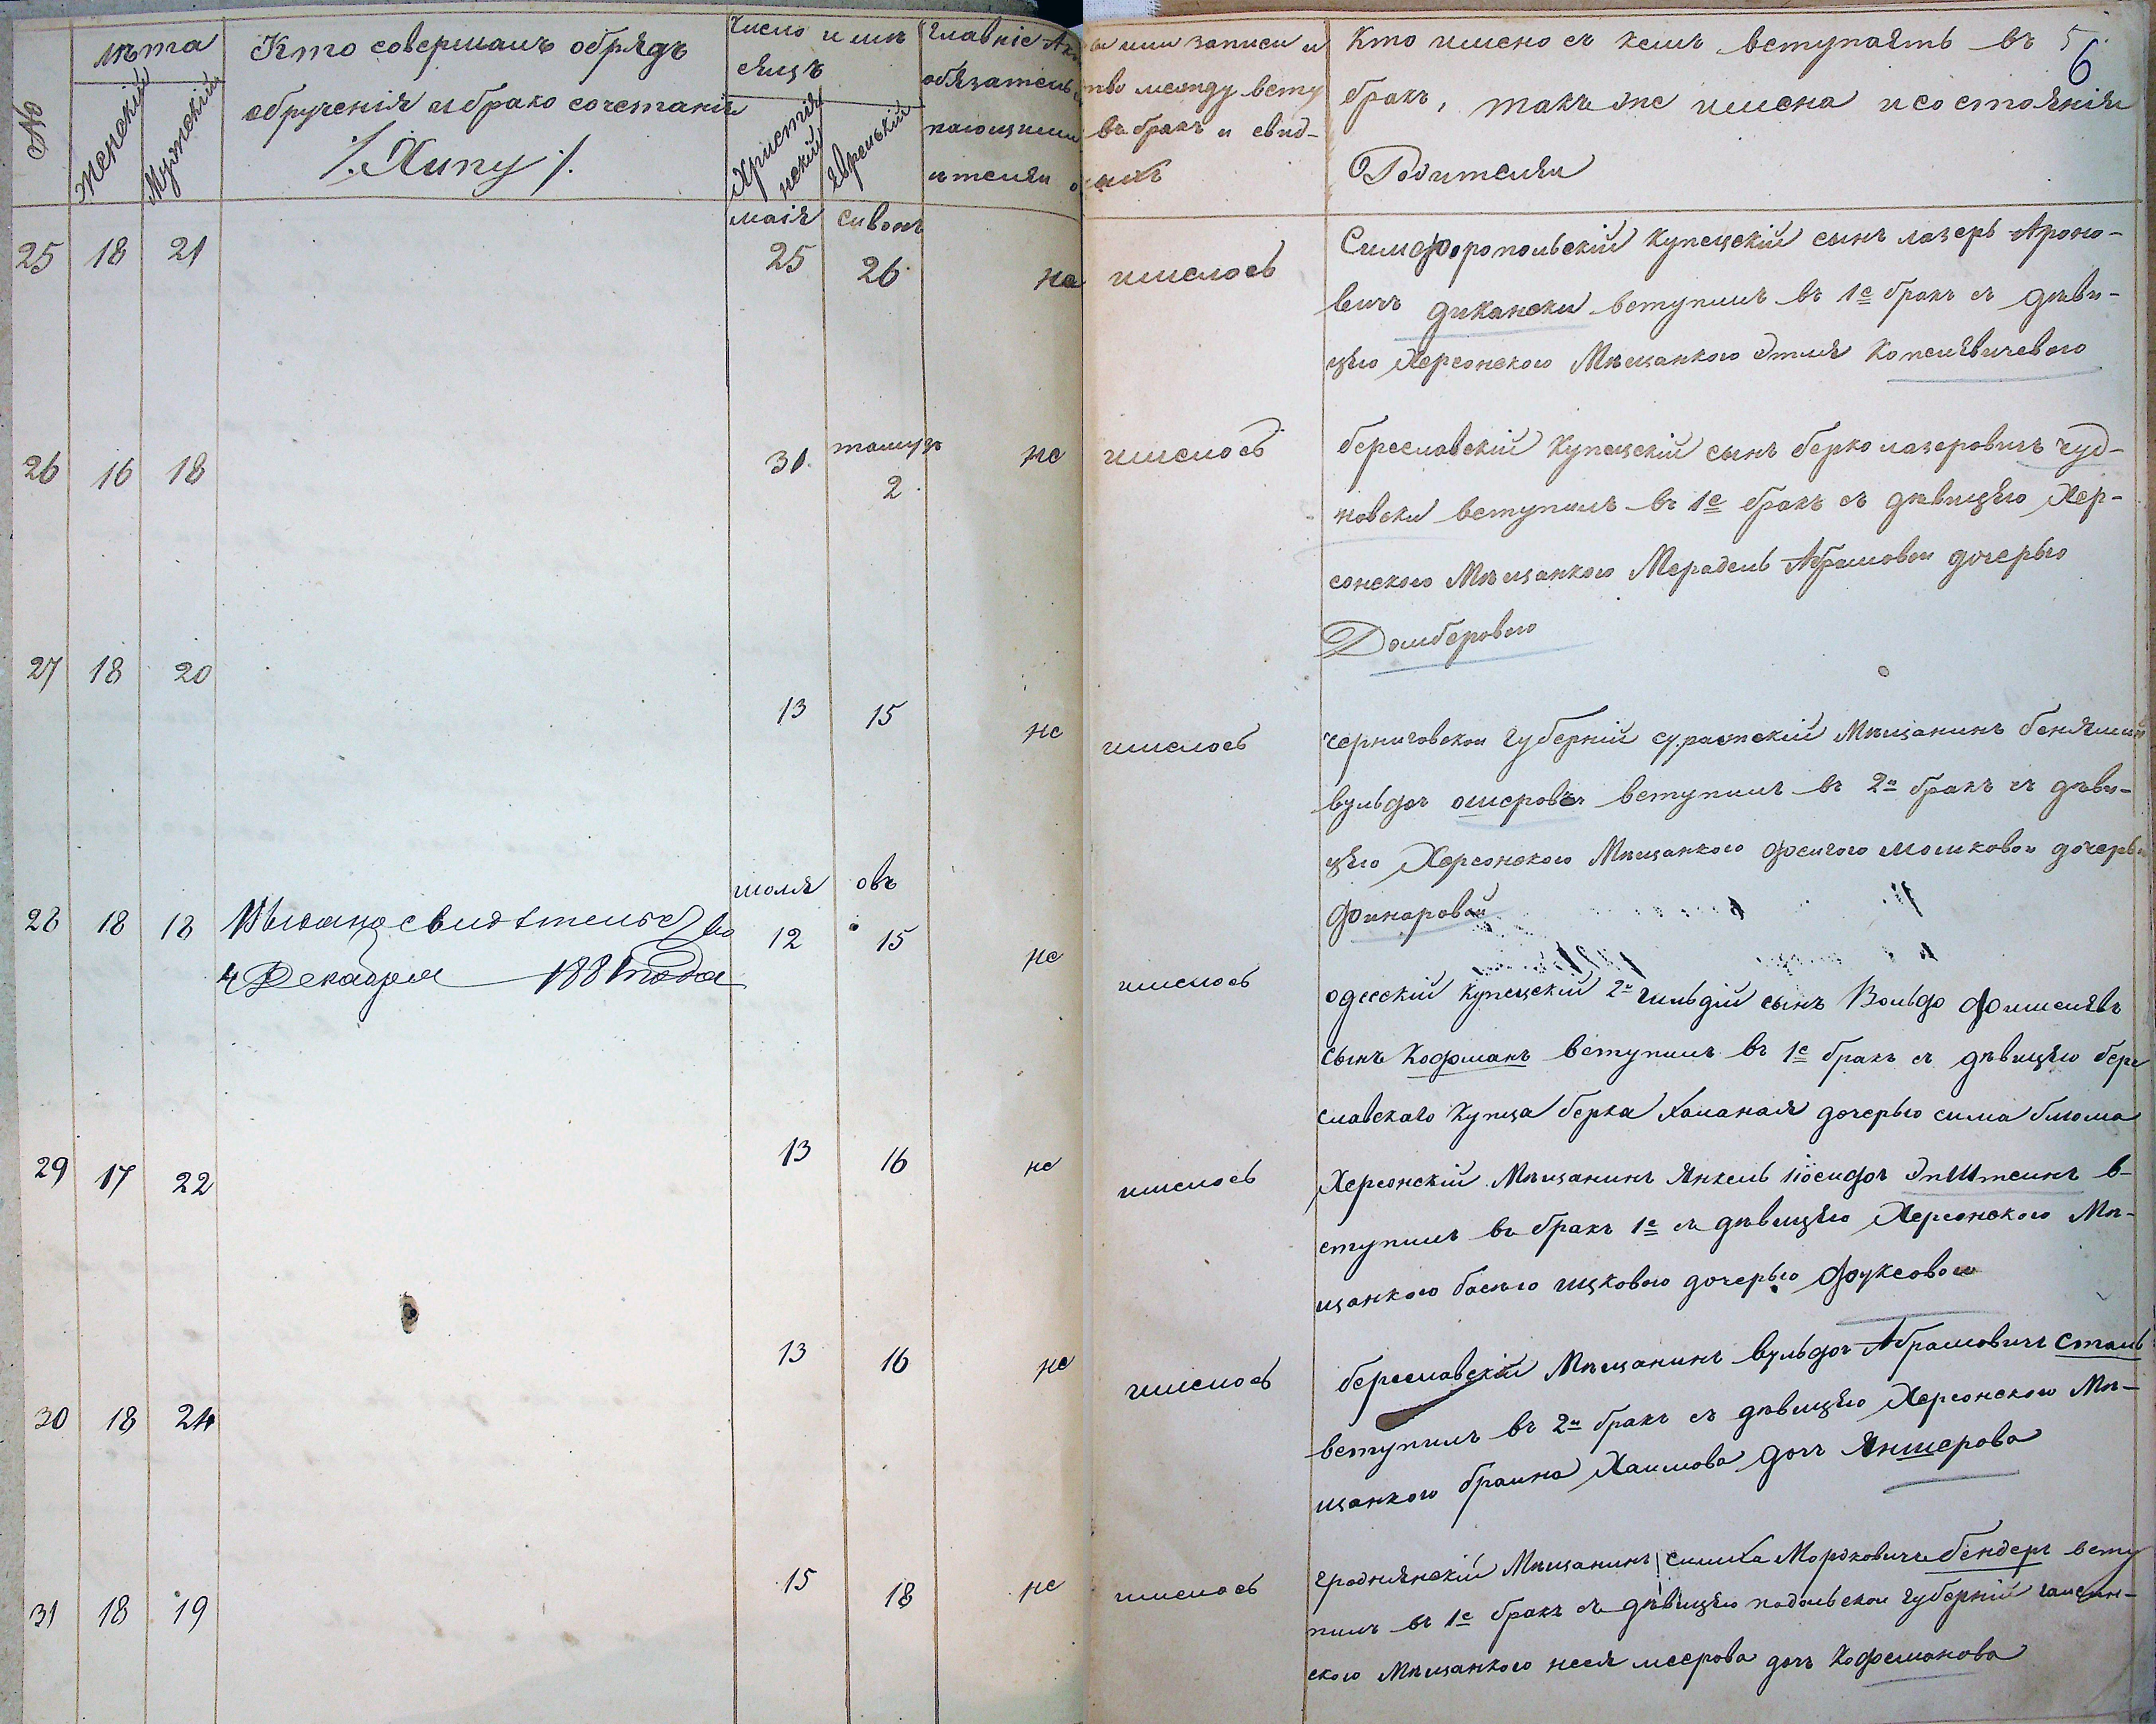 №
лѣта
женскій
Мужескій
Кто совершалъ обрядъ
обрученія и брако сочетанія
/. Хипу /.
число и мѣ
сяцъ
Христія
нский
Еврейский
главніе Ак
обязатель
пающими
ители
ы или записи и
тво между всту
въ бракъ и свид-
нихъ
Кто имено съ кемъ вступаятъ въ
бракъ, такъ же имена и состоянія
Родителяи
5
6
маія
сивонъ
25 18 21
25
26
не имелось
Симфоропольскій Купецскій сынъ лазеръ Ароно-
вичъ дикански вступилъ въ 1е бракъ съ дѣви-
цѣю Херсонского Мѣщанкого Этля Копелявичевого
26 16 18
31
тамузъ
2
не имелось
береславскій Купецскій сынъ берко лазеровичъ чуд-
новски вступилъ въ 1е бракъ съ дѣвицѣю Хер-
сонского Мѣщанкого Мерадель Абрамовои дочерью
Домберового
27 18 20
13
15
не имелось
черниговскои губерніи суражскій Мѣщанинъ бенямин
вульфъ ошеровъ вступилъ въ 2й бракъ съ дѣви-
цѣю Херсонского Мѣщанкого фейгого мошковои дочерью
финаровои
июля
овъ
28 18 18
Выдано свидѣтельство
4 Декабря 1881 года
12
15
не имелось
одесскій Купецскій 2й гильдіи сынъ Вольф фишелявъ
сынъ Кофманъ вступилъ въ 1е бракъ съ дѣвицѣю бере
славскаго Купца берка Хананая дочерью сима блюма
29 17 22
13
16
не имелось
Херсонскій Мѣщанинъ Янкель іосифъ Эпштеинъ в-
ступилъ въ бракъ 1е съ дѣвицѣю Херсонского Мѣ-
щанкого басего ицкового дочерью фуксовои
13
16
не имелось
береславскій Мѣщанинъ вульфъ Абрамовичъ сталь
30 18 24
вступилъ въ 2й бракъ съ дѣвицѣю Херсонского Мѣ-
щанкого браина Хаимова дочъ Яншерова
31 18 19
15
18
не имелось
гроднянскій Мѣщанинъ симха Мордковичъ бендеръ всту
пилъ въ 1е бракъ съ дѣвицѣю подольскои губерніи гаисин-
ского Мѣщанкого неся меерова дочъ Кофеманова